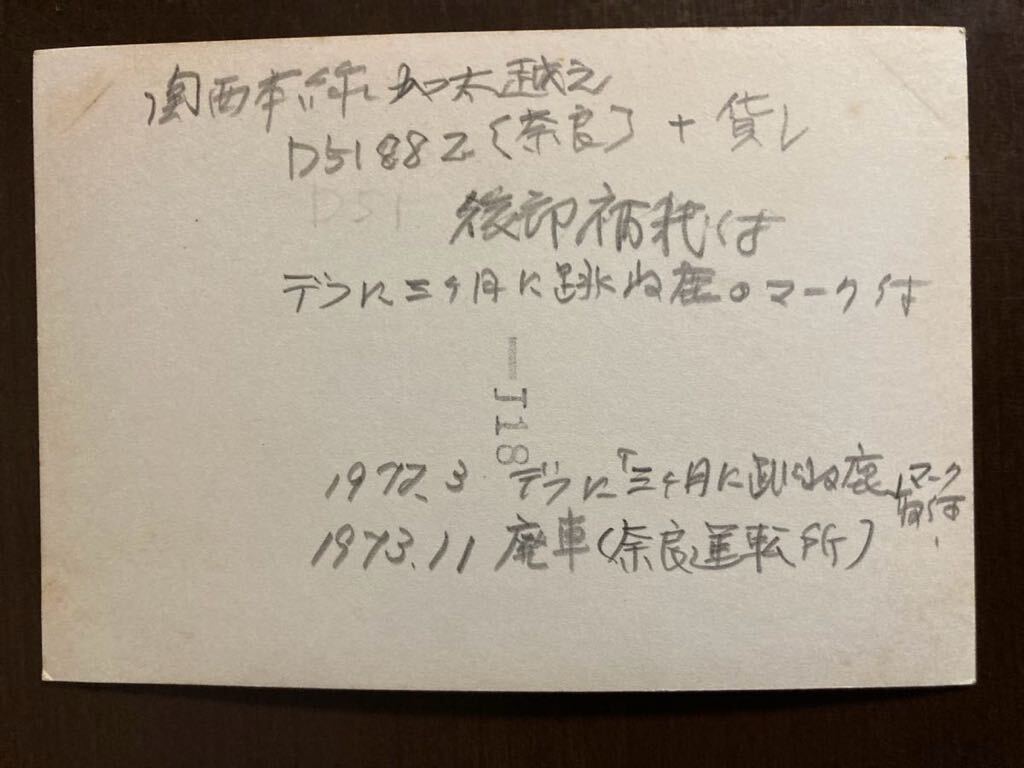 関西本線 加太越え
D51882〔奈良〕+貨レ
D51
後部補機付
デフに三ケ月に跳ね鹿のマーク付
—J18
1972.3 デフに「三ケ月に跳ね鹿」マーク
取付.
1973.11 廃車(奈良運転所)